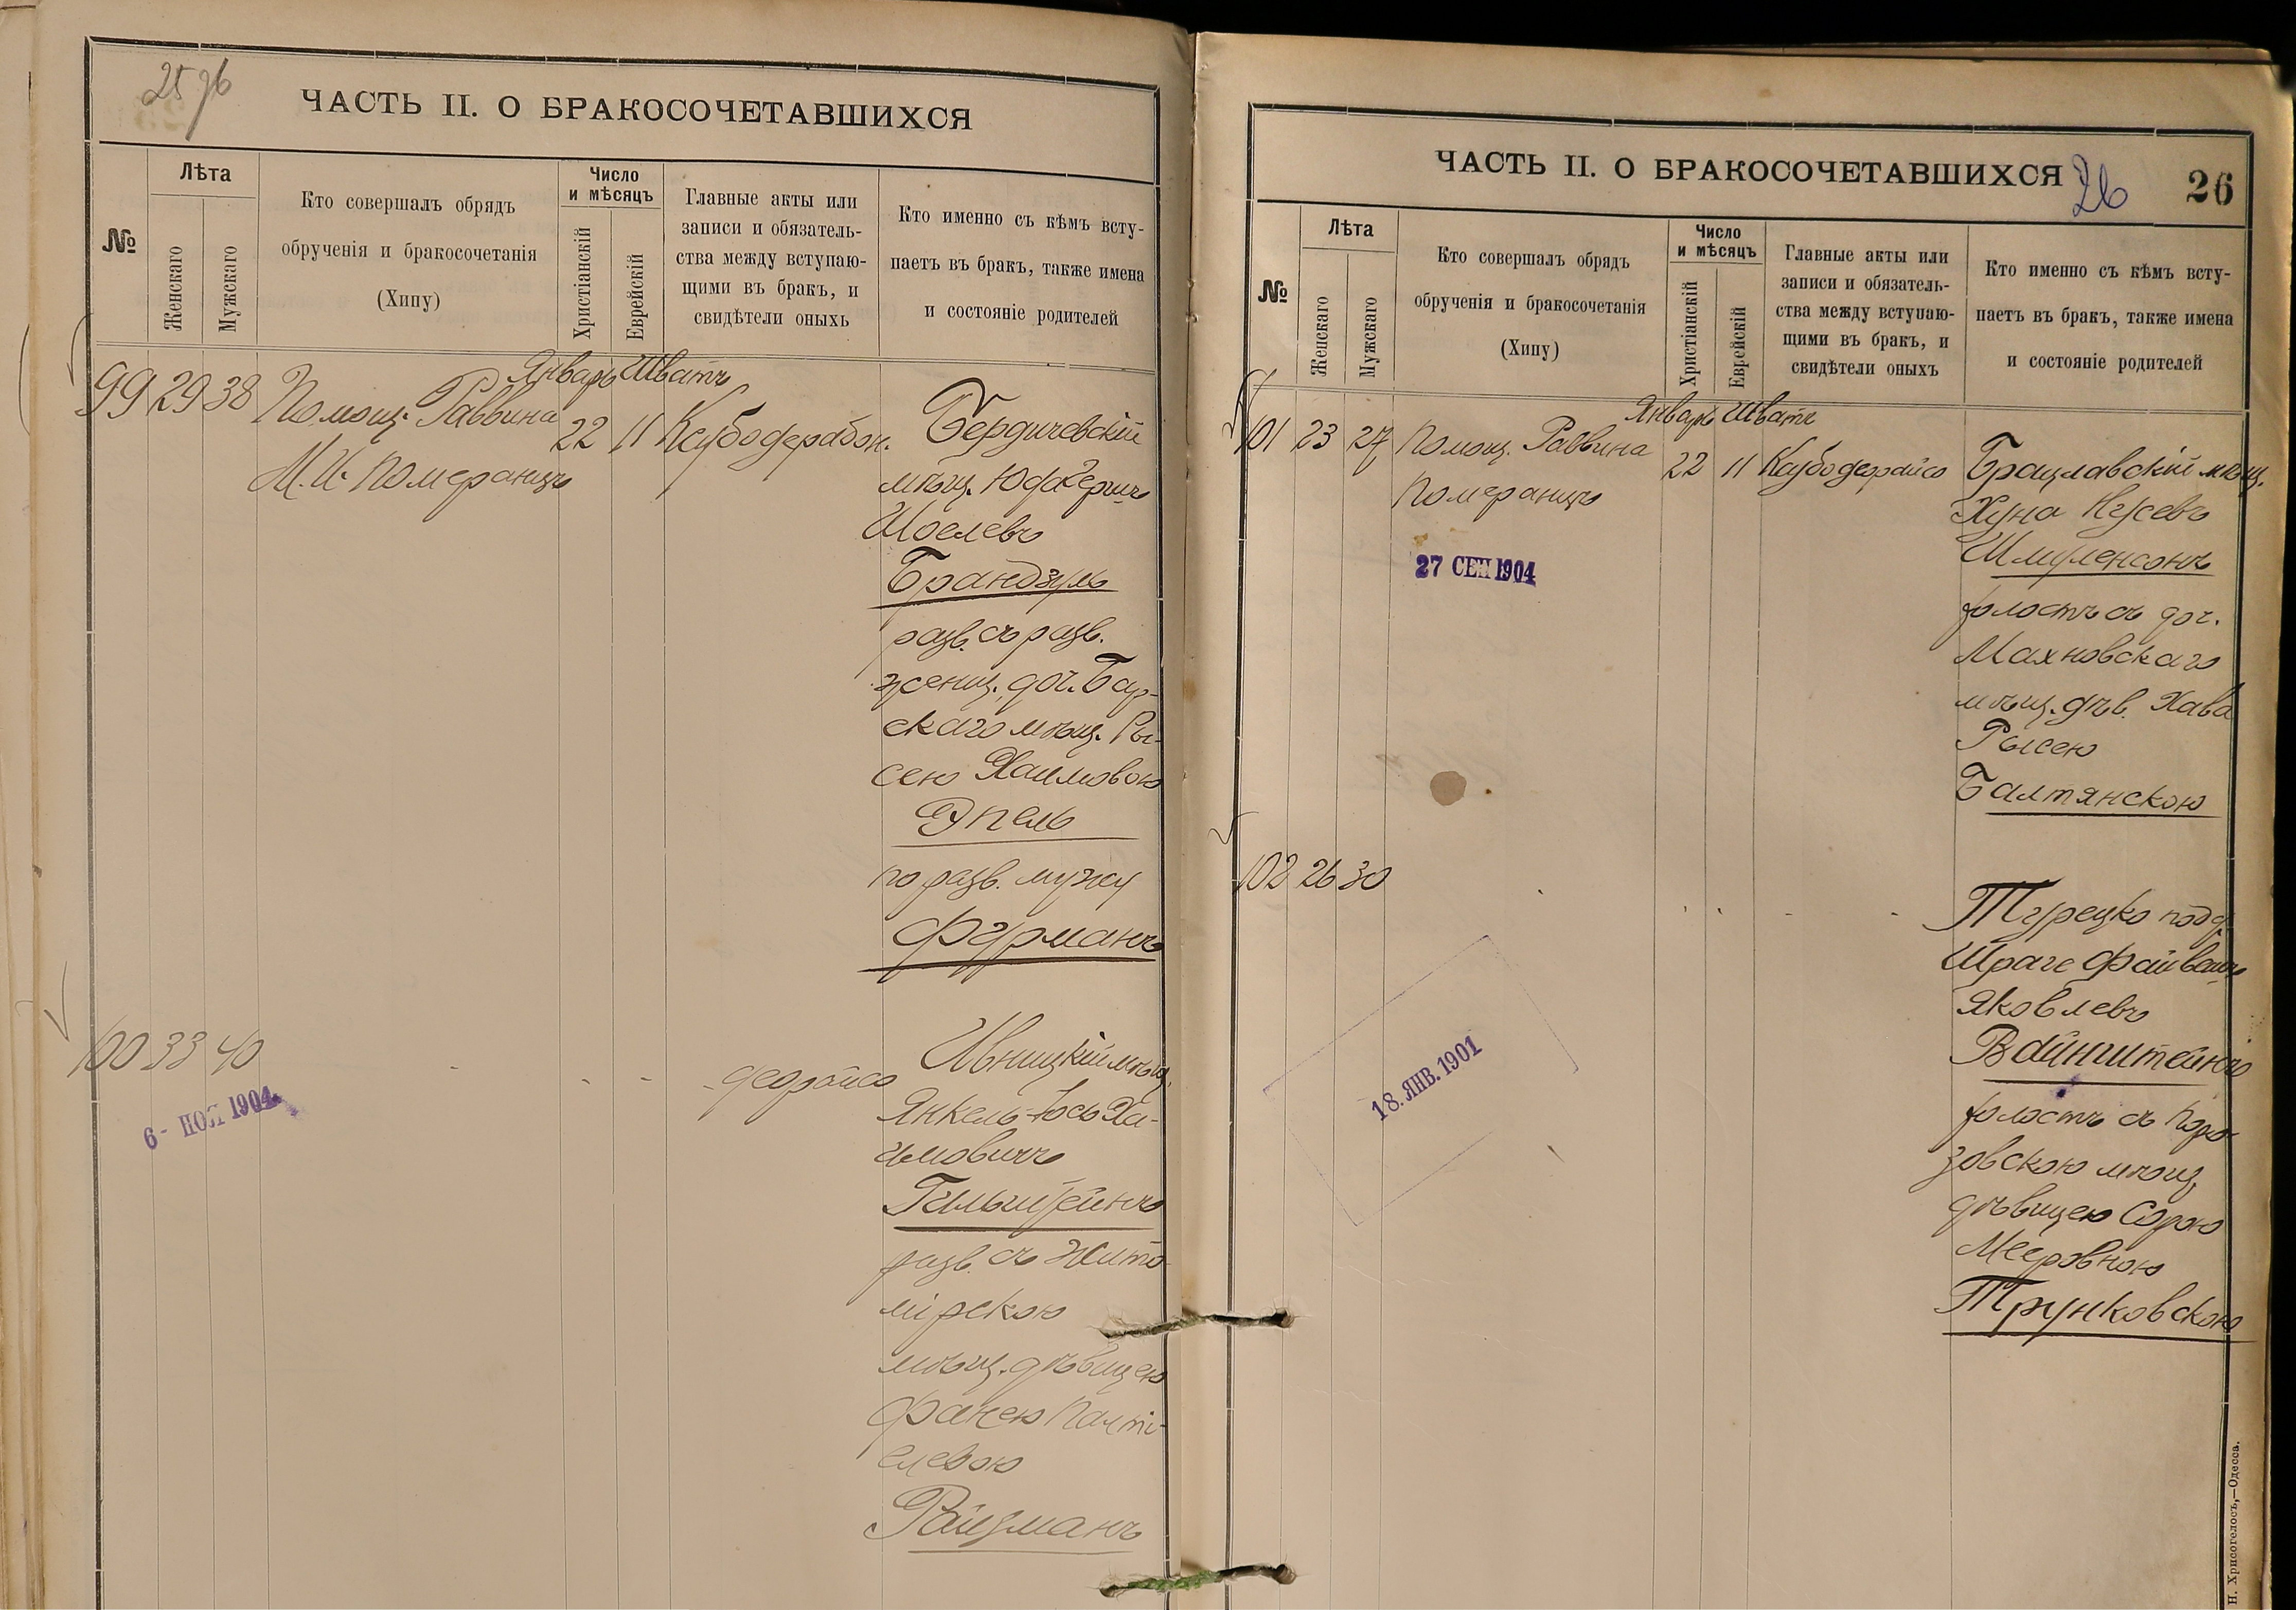 25 об
ЧАСТЬ II. О БРАКОСОЧЕТАВШИХСЯ
№
Лѣта
Женскаго
Мужскаго
Кто совершалъ обрядъ
обрученія и бракосочетанія
(Хипу)
Число
и мѣсяцъ
Христіанскій
Еврейскій
Главные акты или
записи и обязатель-
ства между вступаю-
щими въ бракъ, и
свидѣтели оныхъ
Кто именно съ кѣмъ всту-
паетъ въ бракъ, также имена
и состояніе родителей
Январь Шватъ
99 29 38 Помощ. Раввина 22 11
М. И. Померанцъ
Бердичевскій
мѣщ. Юда Гершъ
Шоелевъ
Брандзуль
разв. съ разв.
женщ. доч. Бар-
скаго мѣщ. Ры-
сею Хаимовою
Эпель
по разв. мужу
Фурманъ
100 33 40
6 - НОЯ 1904
Ивницкій мѣщ.
Янкель-Іось Ха-
имовичъ
Гальштейнъ
разв. съ Жито-
мірскою
мѣщ. дѣвицею
Фанею Палті-
елевою
Райзманъ
ЧАСТЬ II. О БРАКОСОЧЕТАВШИХСЯ
26
26
№
Лѣта
Женскаго
Мужскаго
Кто совершалъ обрядъ
обрученія и бракосочетанія
(Хипу)
Число
и мѣсяцъ
Христіанскій
Еврейскій
Главные акты или
записи и обязатель-
ства между вступаю-
щими въ бракъ, и
свидѣтели оныхъ
Кто именно съ кѣмъ всту-
паетъ въ бракъ, также имена
и состояніе родителей
Январь Шватъ
101 23 27 Помощ. Раввина 22 11
Померанцъ
27 СЕН 1904
Брацлавскій мѣщ.
Хуна Нусевъ
Шмуленсонъ
холостъ съ доч.
Махновскаго
мѣщ. дѣв. Хава
Рысею
Балтянскою
102 26 30
18. ЯНВ. 1901
Турецко подд.
Шраге Файвишъ
Яковлевъ
Вайнштейнъ
холостъ съ Поро-
зовскою мѣщ.
дѣвицею Сарою
Мееровною
Трунковскою
Н. Хрисогелосъ,—Одесса.